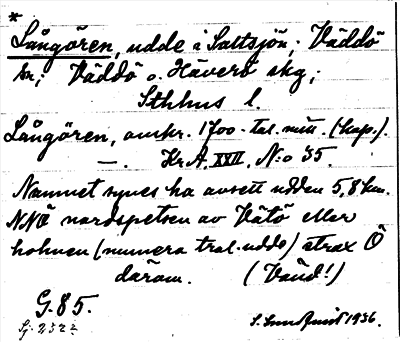 *
Långören, udde i Saltsjön; Väddö
sn; Väddö o. Häverö skg;
Sthlms l.
Långören, omkr. 1700-tal. mitt. (kop.).
—. Kr. A. XXII, N:o 35.
Namnet synes ha avsett udden 5,8 km.
NNÖ nordspetsen av Vätö eller
holmen (numera trol. udde) strax Ö
därom. (Vänd!)
G. 85.
1936.